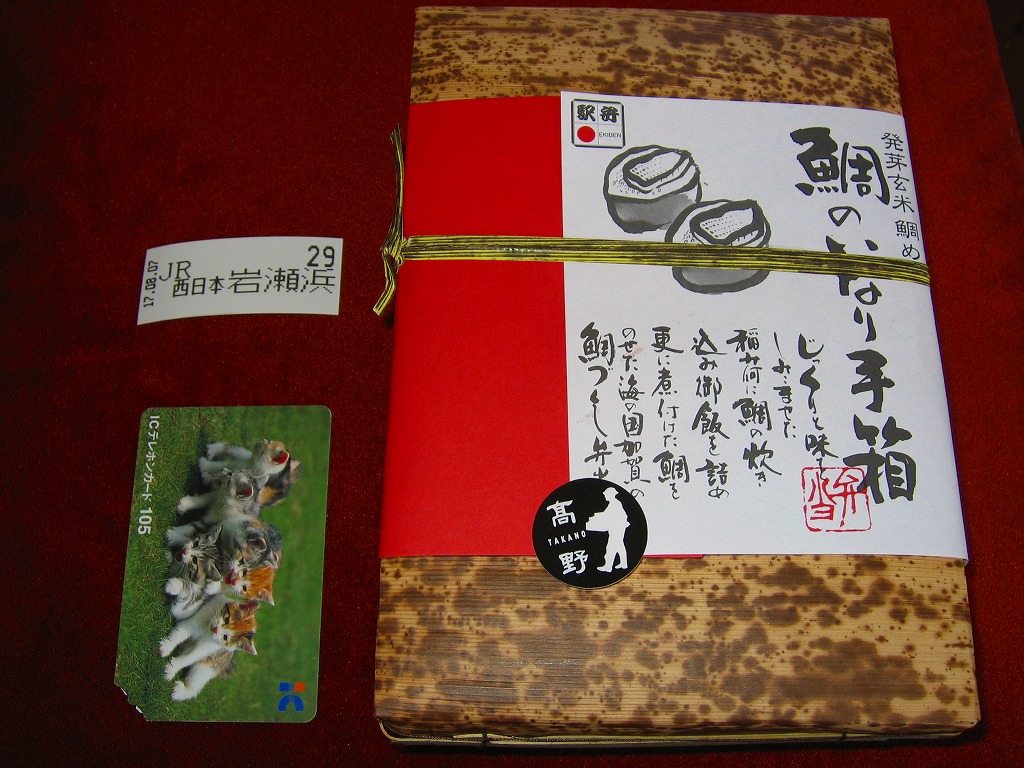 29
17.08.07
JR
西日本岩瀬浜
ICテレホンカード 105
駅弁
EKIBEN
発芽玄米 鯛め
鯛のいなり手箱
じっくりと味を
しみこませた
稲荷に鯛の炊き
込み御飯を詰め
更に煮付けた鯛を
のせた海の国加賀の
鯛づくし弁当
高野
TAKANO